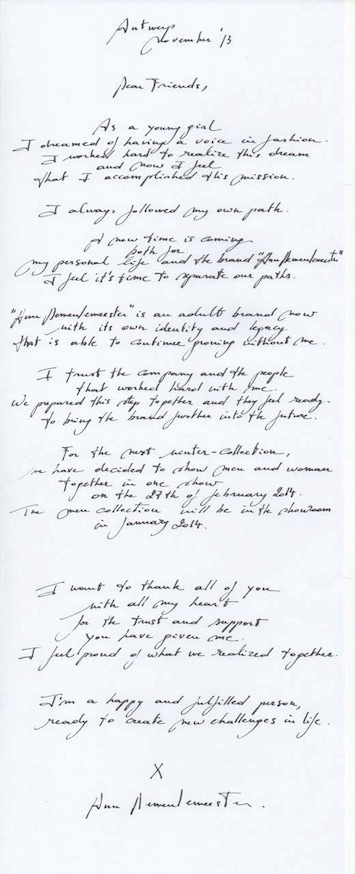 Antwerp
november '13
Dear Friends,
As a young girl
I dreamed of having a voice in fashion.
I worked hard to realize this dream
and now I feel
that I accomplished this mission.
I always followed my own path.
A new time is coming
both for
my personal life and the brand "Ann Demeulemeester"
I feel it's time to separate our paths.
"Ann Demeulemeester" is an adult brand now
with its own identity and legacy
that is able to continue growing without me.
I trust the company and the people
that worked hard with me.
We prepared this step together and they feel ready
to bring the brand further into the future.
For the next winter-collection,
we have decided to show men and woman
together in one show
on the 27th of february 2014.
The men collection will be in the showroom
in january 2014.
I want to thank all of you
with all my heart
for the trust and support
you have given me.
I feel proud of what we realized together.
I'm a happy and fulfilled person,
ready to create new challenges in life.
X
Ann Demeulemeester.